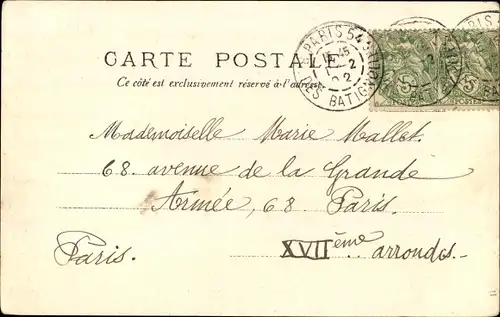 CARTE POSTALE
Ce côté est exclusivement réservé à l'adresse
PARIS 54
DES BATIGNOLLES
Mademoiselle Marie Mallet.
68. avenue de la Grande
Armée, 68 Paris.
Paris. XVII ème arrondis.